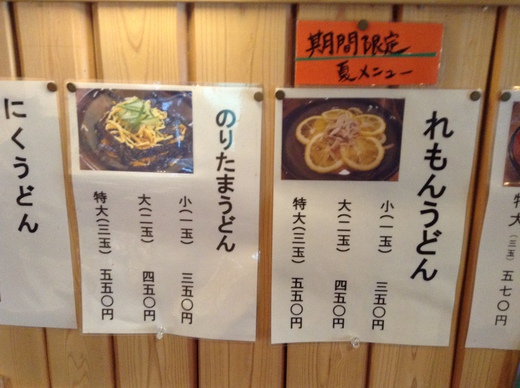 期間限定
夏メニュー
れもんうどん
小(一玉) 三五〇円
大(二玉) 四五〇円
特大(三玉) 五五〇円
のりたまうどん
小(一玉) 三五〇円
大(二玉) 四五〇円
特大(三玉) 五五〇円
にくうどん
特大(三玉) 五七〇円